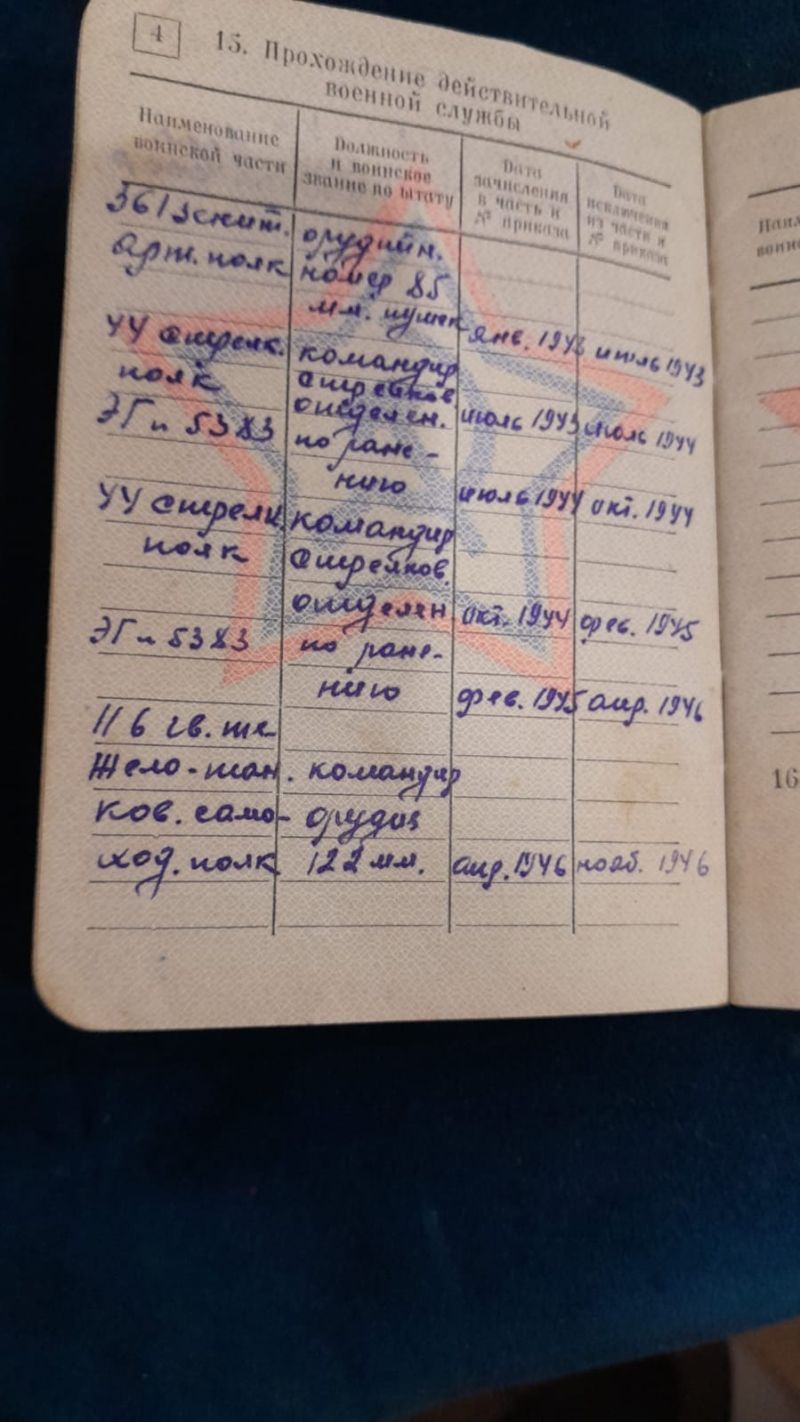 4
15. Прохождение действительной
военной службы
Наименование
воинской части
Должность
и воинское
звание по штату
Дата
зачисления
в часть и
№ приказа
Дата
исключения
из части и
№ приказа
361 зенит. орудийн.
арт. полк номер 85
мм. пушек янв. 1943 июль 1943
44 стрелк. командир
полк стрелков.
отделен. июль 1943 июль 1944
ЭГ п 5383 по ране-
нию июль 1944 окт. 1944
44 стрелк. командир
полк стрелков.
отделен окт. 1944 фев. 1945
ЭГ п 5383 по ране-
нию фев. 1945 апр. 1946
116 гв. тк
командир
ков. само- орудия
ход. полк 122 мм. апр. 1946 нояб. 1946
16